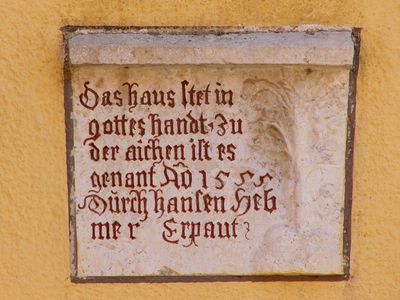 Das haus stet in
gottes handt, zu
der aichen ist es
genant Aõ 1555
Dŭrch hansen Heb
mer Erpaut